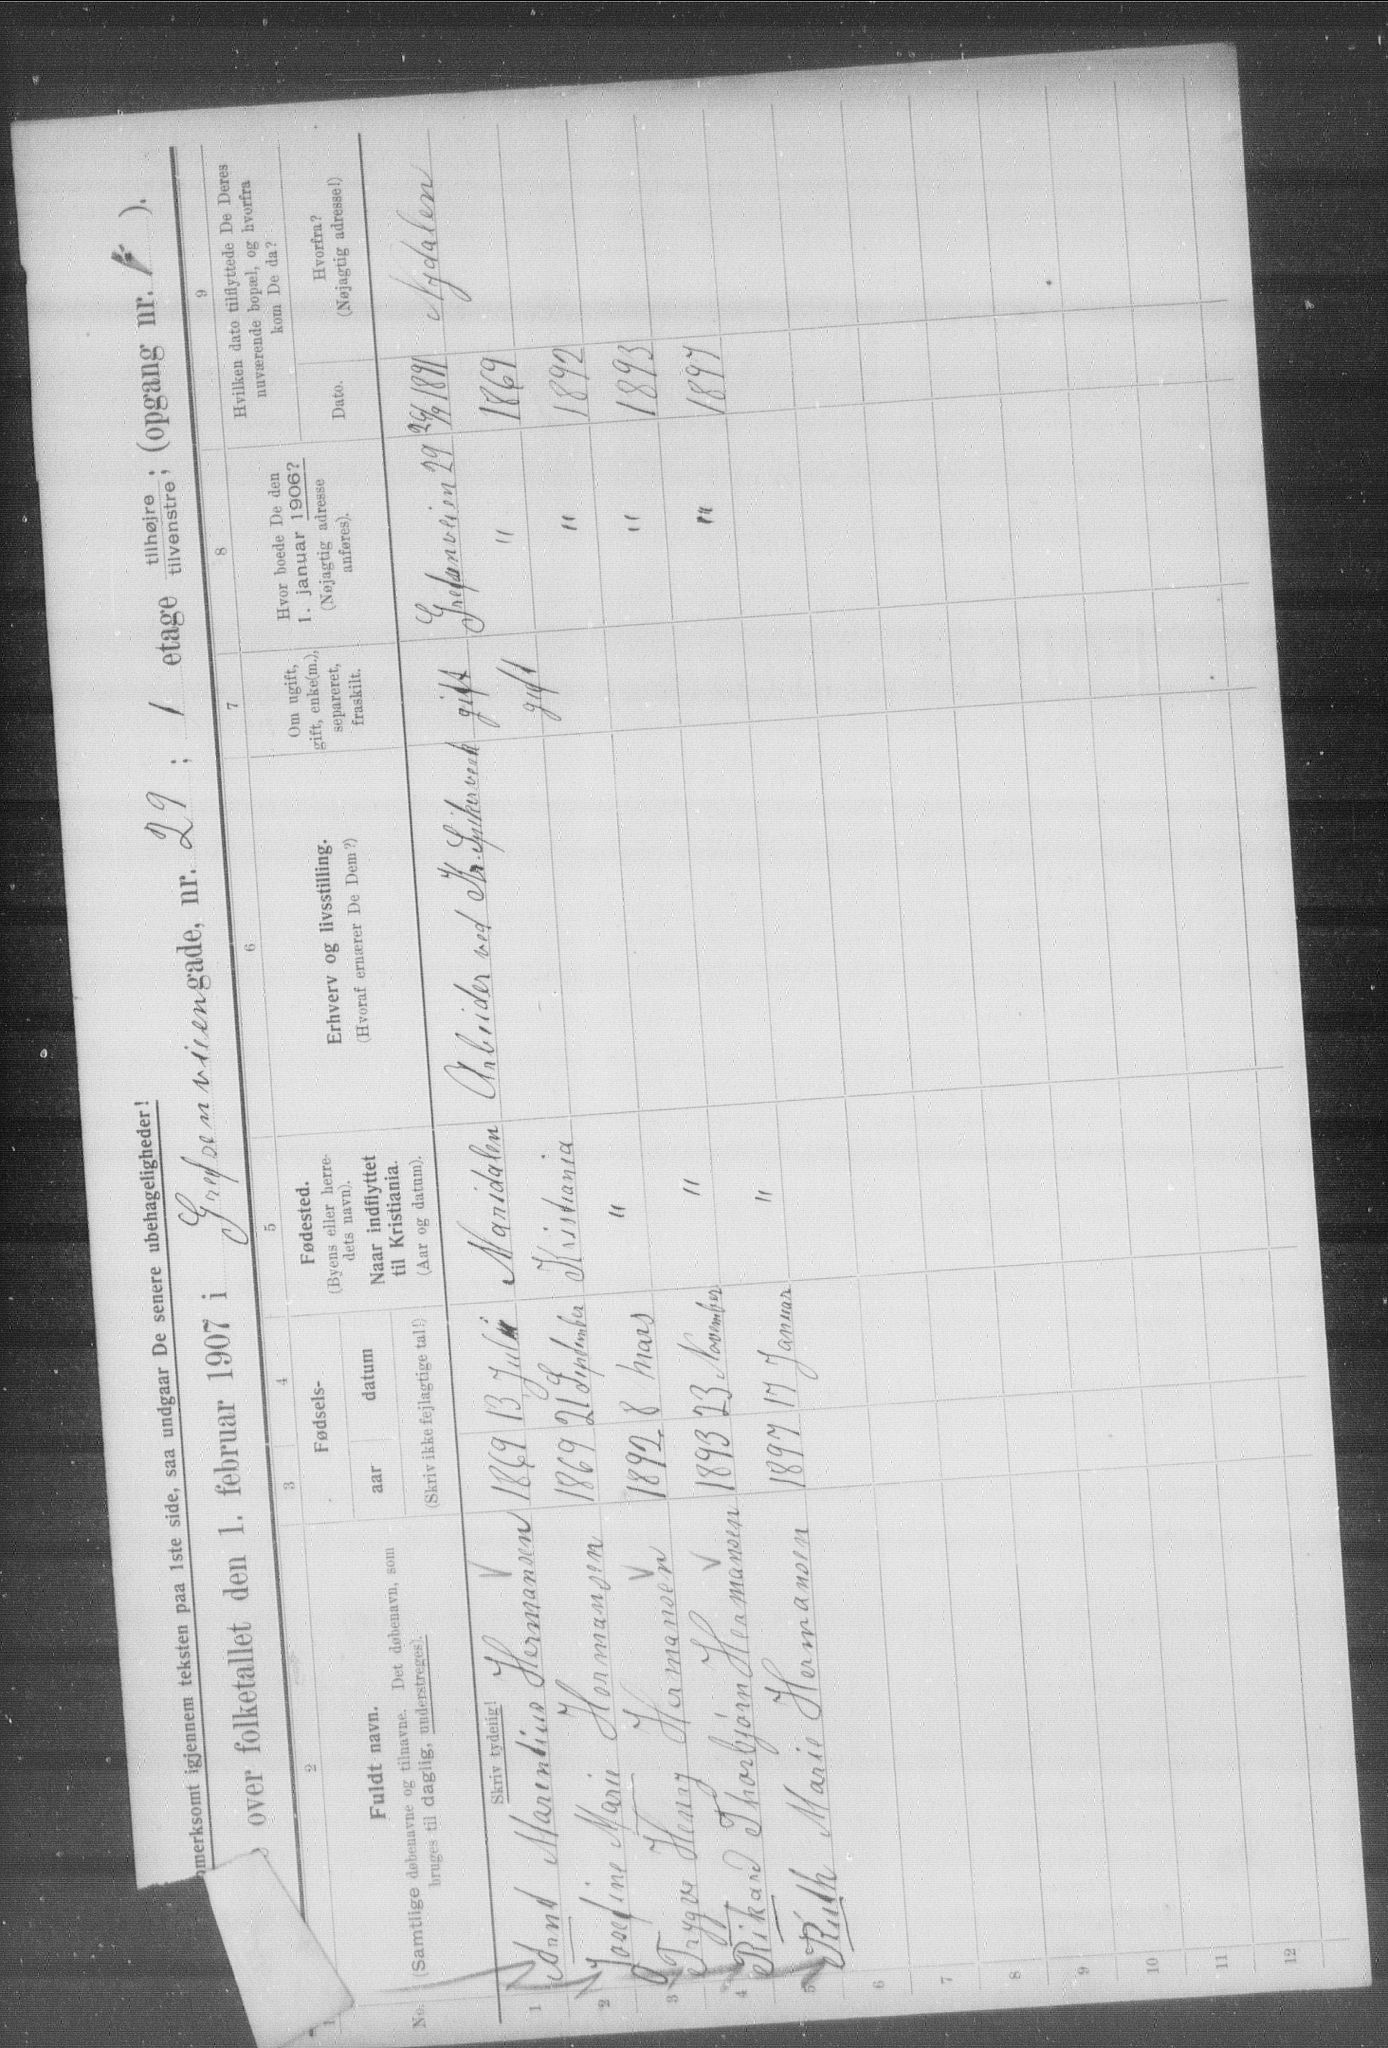 omerksomt igjennem teksten paa 1ste side, saa undgaar De senere ubehageligheder!
over folketallet den 1. februar 1907 i Grefsenveiengade, nr. 29 ; 1 etage tilhøjre ; tilvenstre ; (opgang nr. ).
1 2 3 4 5 6 7 8 9
No.
Fuldt navn.
(Samtlige døbenavne og tilnavne. Det døbenavn, som
bruges til daglig, understreges).
Skriv tydelig!
Fødsels-
aar datum
(Skriv ikke fejlagtige tal!)
Fødested.
(Byens eller herre-
dets navn).
Naar indflyttet
til Kristiania.
(Aar og datum).
Erhverv og livsstilling.
(Hvoraf ernærer De Dem?)
Om ugift,
gift, enke(m.),
separeret,
fraskilt.
Hvor boede De den
1. januar 1906?
(Nøjagtig adresse
anføres).
Hvilken dato tilflyttede De Deres
nuværende bopæl, og hvorfra
kom De da?
Dato.
Hvorfra?
(Nøjagtig adresse!)
1 Arnt Marentius Hermansen V 1869 13 Juli Maridalen Arbeider ved Kr. Spikerverk gift Grefsenveien 29 1891 Nydalen
2 Josefine Marie Hermansen 1869 21 September Kristiania gift " 1869
3 Trygve Henry Hermansen V 1892 8 Mars " " 1892
4 Rikard Thorbjørn Hermansen V 1893 23 November " " 1893
5 Ruth Marie Hermansen 1897 17 Januar " " 1897
6
7
8
9
10
11
12